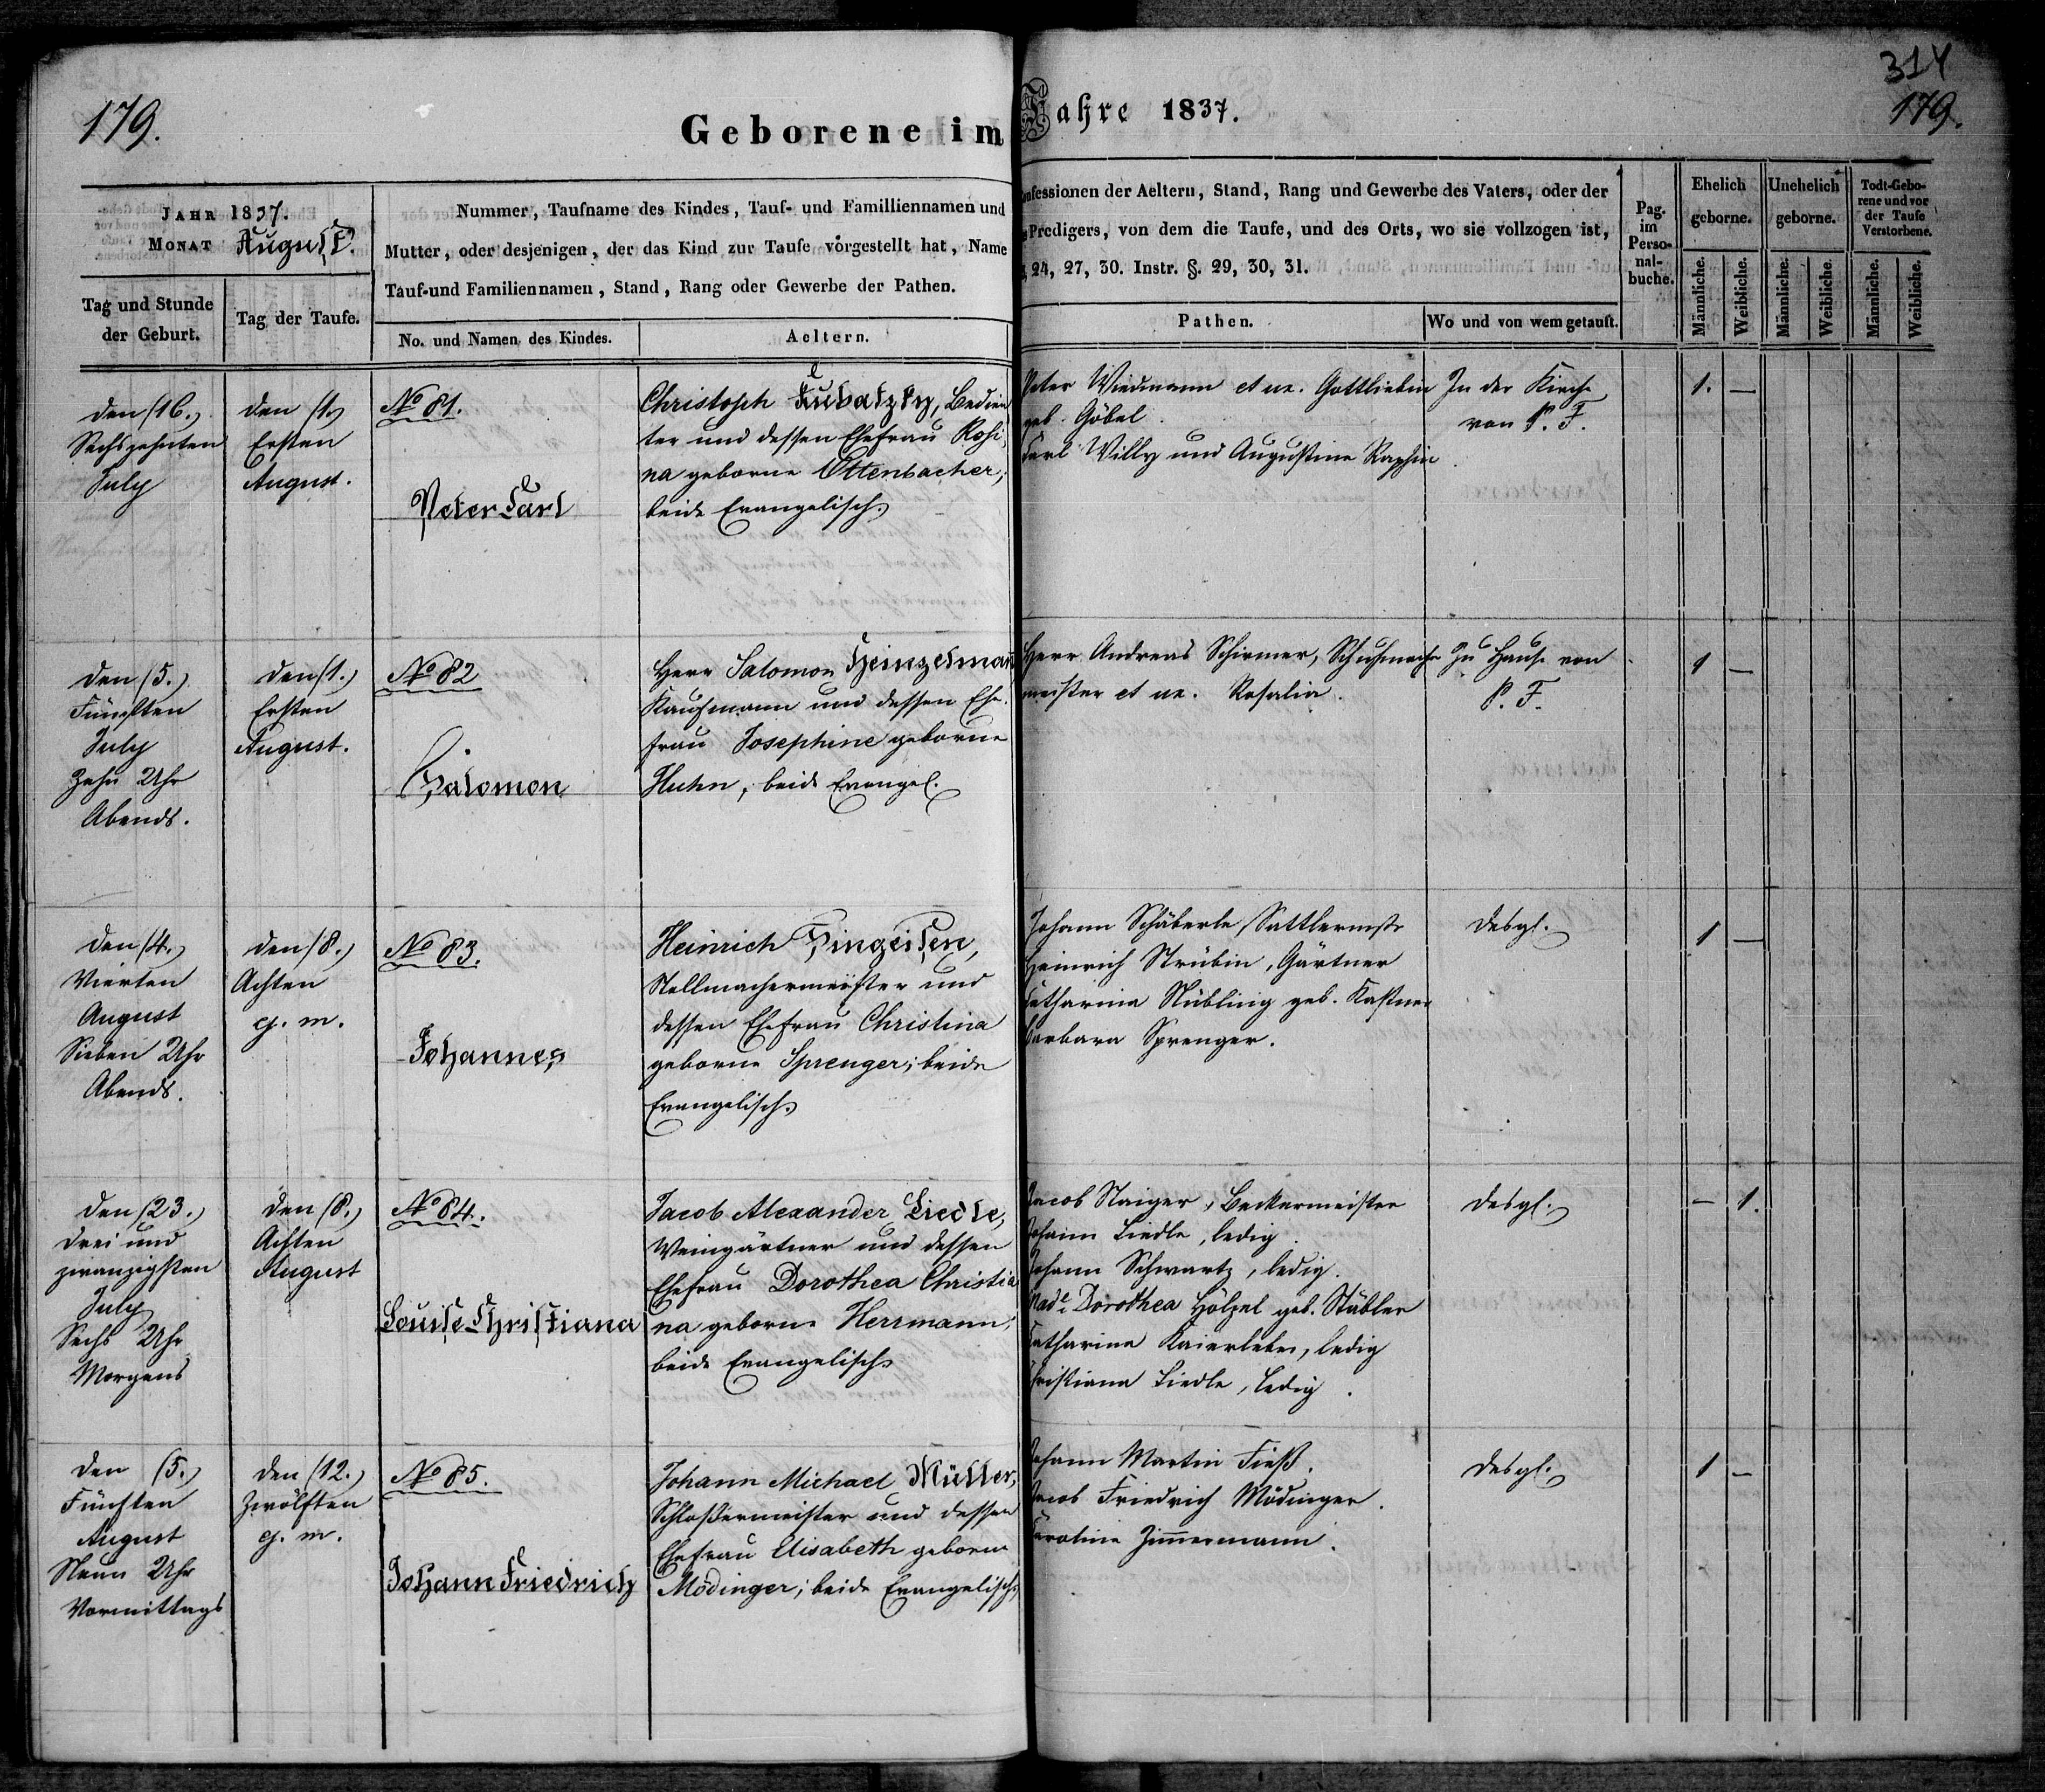 314
179.
179.
Geborene im Jahre 1837.
JAHR 1837.
MONAT August.
Tag und Stunde
der Geburt.
Tag der Taufe.
Nummer, Taufname des Kindes, Tauf- und Familliennamen und
onfessionen der Aeltern, Stand, Rang und Gewerbe des Vaters, oder der
Mutter, oder desjenigen, der das Kind zur Taufe vorgestellt hat, Name
Predigers, von dem die Taufe, und des Orts, wo sie vollzogen ist,
Tauf-und Familiennamen, Stand, Rang oder Gewerbe der Pathen.
24, 27, 30. Instr. §. 29, 30, 31.
No. und Namen des Kindes.
Aeltern.
Pathen.
Wo und von wem getauft.
Pag.
im
Perso-
nal-
buche.
Ehelich
geborne.
Unehelich
geborne.
Todt-Gebo-
rene und vor
der Taufe
Verstorbene.
Männliche.
Weibliche.
Männliche.
Weibliche.
Männliche.
Weibliche.
den (16.)
Sechszehnten
July
den (1.)
Ersten
August.
No 81.
Peter Carl
Christoph Kubatzky, Bedien
ter und dessen Ehefrau Rosi
na geborne Ottenbacher;
beide Evangelisch.
Peter Wiedmann et ux. Gottliebin
geb. Göbel.
Carl Willy und Augustine Raphin
In der Kirche
von P. F.
1. —
den (5.)
Fünften
July
Zehn Uhr
Abends.
den (1.)
Ersten
August.
No 82
Salomon
Herr Salomon Heinzelmañ
Kaufmann und dessen Ehe-
frau Josephine geborne
Huhn, beide Evangel.
Herr Andreas Schirmer, Schuhmacher
meister et ux. Rosalia.
Zu Hause von
P. F.
1 —
den (4.)
Vierten
August
Sieben Uhr
Abends.
den (8.)
Achten
ej. m.
No 83.
Johannes
Heinrich Singeisen,
Stellmachermeister und
dessen Ehefrau Christina
geborne Sprenger; beide
Evangelisch.
Johann Schäberle Sattlermstr
Heinrich Strübin, Gärtner
Catharina Nübling geb. Kastner
Barbara Sprenger.
desgl.
1 —
den (23.)
drei und
zwanzigsten
July
Sechs Uhr
Morgens
den (8.)
Achten
August
No 84.
Louise Christiana
Jacob Alexander Liedle,
Weingärtner und dessen
Ehefrau Dorothea Christia
na geborne Herrmann;
beide Evangelisch.
Jacob Staiger, Beckermeister
Johann Liedle, ledig.
Johann Schwartz, ledig.
Made Dorothea Hölzel geb. Stäbler
Catharina Kaierleber, ledig
Christiana Liedle, ledig.
desgl.
— 1.
den (5.)
Fünften
August
Neun Uhr
Vormittags
den (12.)
Zwölften
ej. m.
No 85.
Johann Friedrich
Johann Michael Müller,
Schloßermeister und dessen
Ehefrau Elisabeth geborne
Mödinger; beide Evangelisch
Johann Martin Fieß.
Jacob Friedrich Mödinger.
Caroline Zimermann.
desgl.
1 —